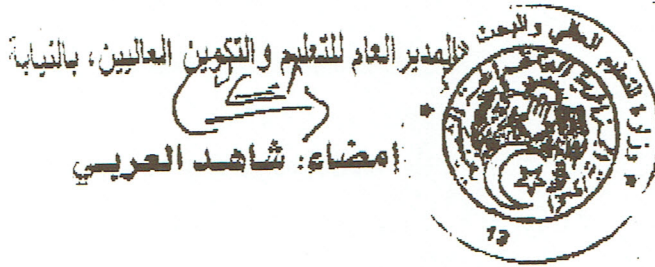 المدير العام للتعليم والتكوين العاليين، بالنيابة
امضاء: شاهد العربي
وزارة التعليم العالي والبحث
12